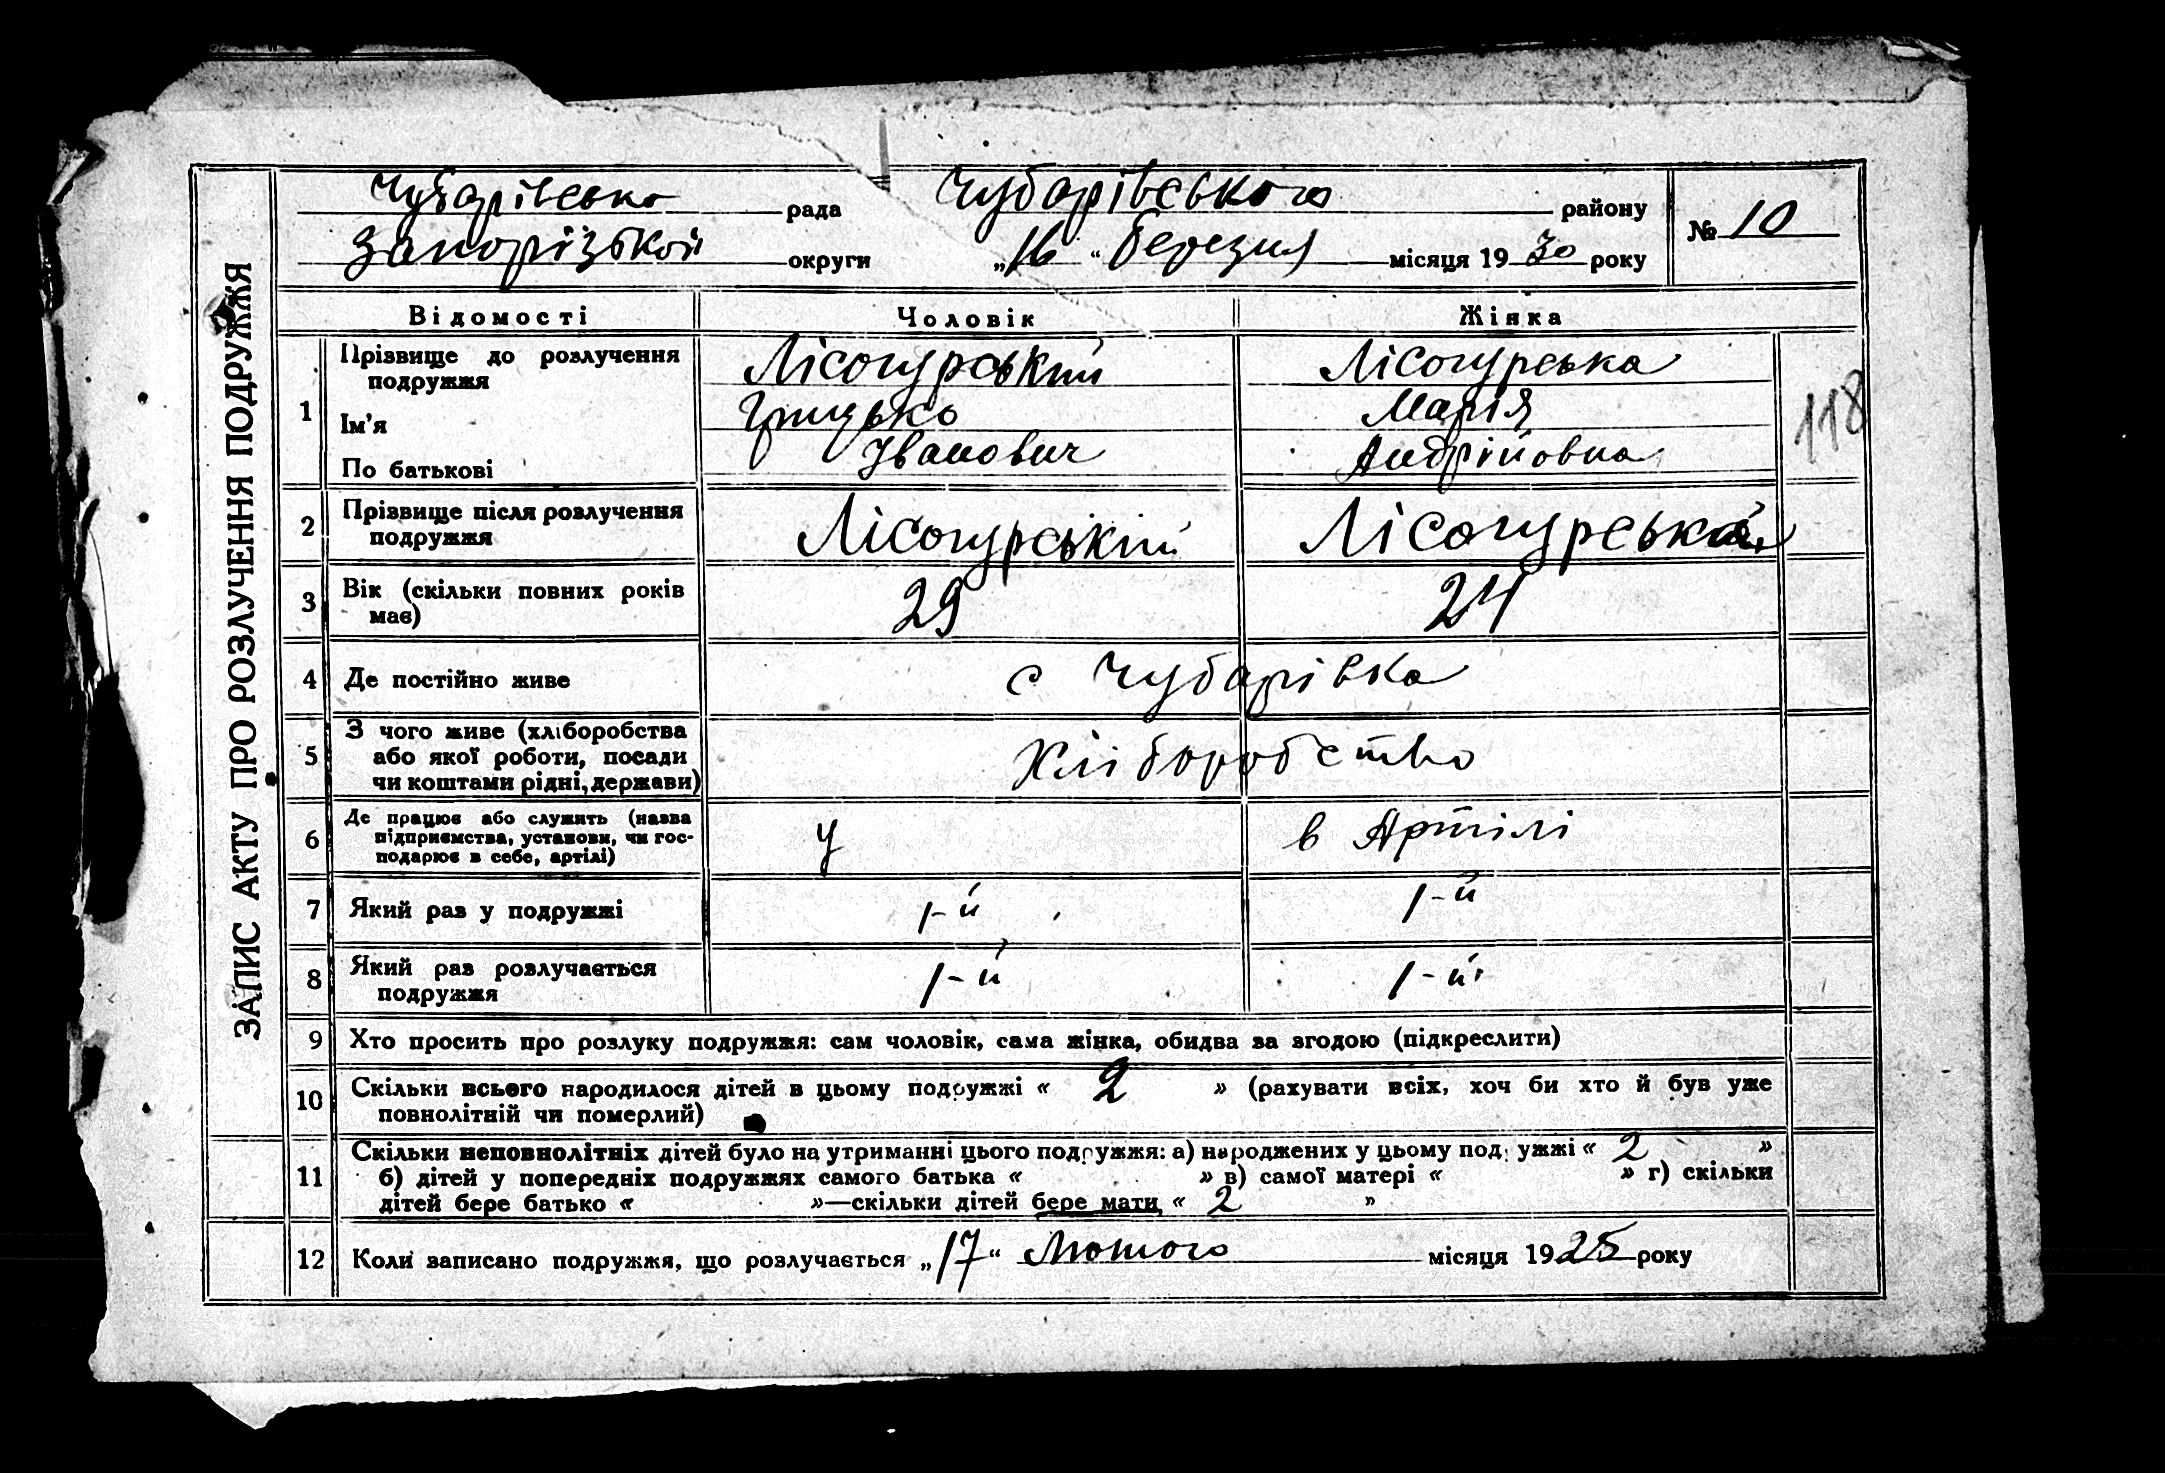 ЗАПИС АКТУ ПРО РОЗЛУЧЕННЯ ПОДРУЖЖЯ
Чубарівсько рада Чубарівського району
Запорізькой округи „16“ березня місяця 1930 року
№ 10
Відомості Чоловік Жінка
1 Прізвище до розлучення подружжя Лісогурський Лісогурська
Ім'я Грицько Марія
По батькові Іванович Андрійовна
118
2 Прізвище після розлучення подружжя Лісогурській Лісогурська
3 Вік (скільки повних років має) 29 24
4 Де постійно живе с Чубарівка
5 З чого живе (хліборобства або якої роботи, посади чи коштами рідні, держави) Хліборобство
6 Де працює або служить (назва підприємства, установи, чи господарює в себе, артілі) у в Артілі
7 Який раз у подружжі 1-й 1-й
8 Який раз розлучається подружжя 1-й 1-й
9 Хто просить про розлуку подружжя: сам чоловік, сама жінка, обидва за згодою (підкреслити)
10 Скільки всього народилося дітей в цьому подружжі « 2 » (рахувати всіх, хоч би хто й був уже
повнолітній чи померлий)
11 Скільки неповнолітніх дітей було на утриманні цього подружжя: а) народжених у цьому подружжі « 2 »
б) дітей у попередніх подружжях самого батька « » в) самої матері « » г) скільки
дітей бере батько « »—скільки дітей бере мати « 2 »
12 Коли записано подружжя, що розлучається „17“ Лютого місяця 1925 року